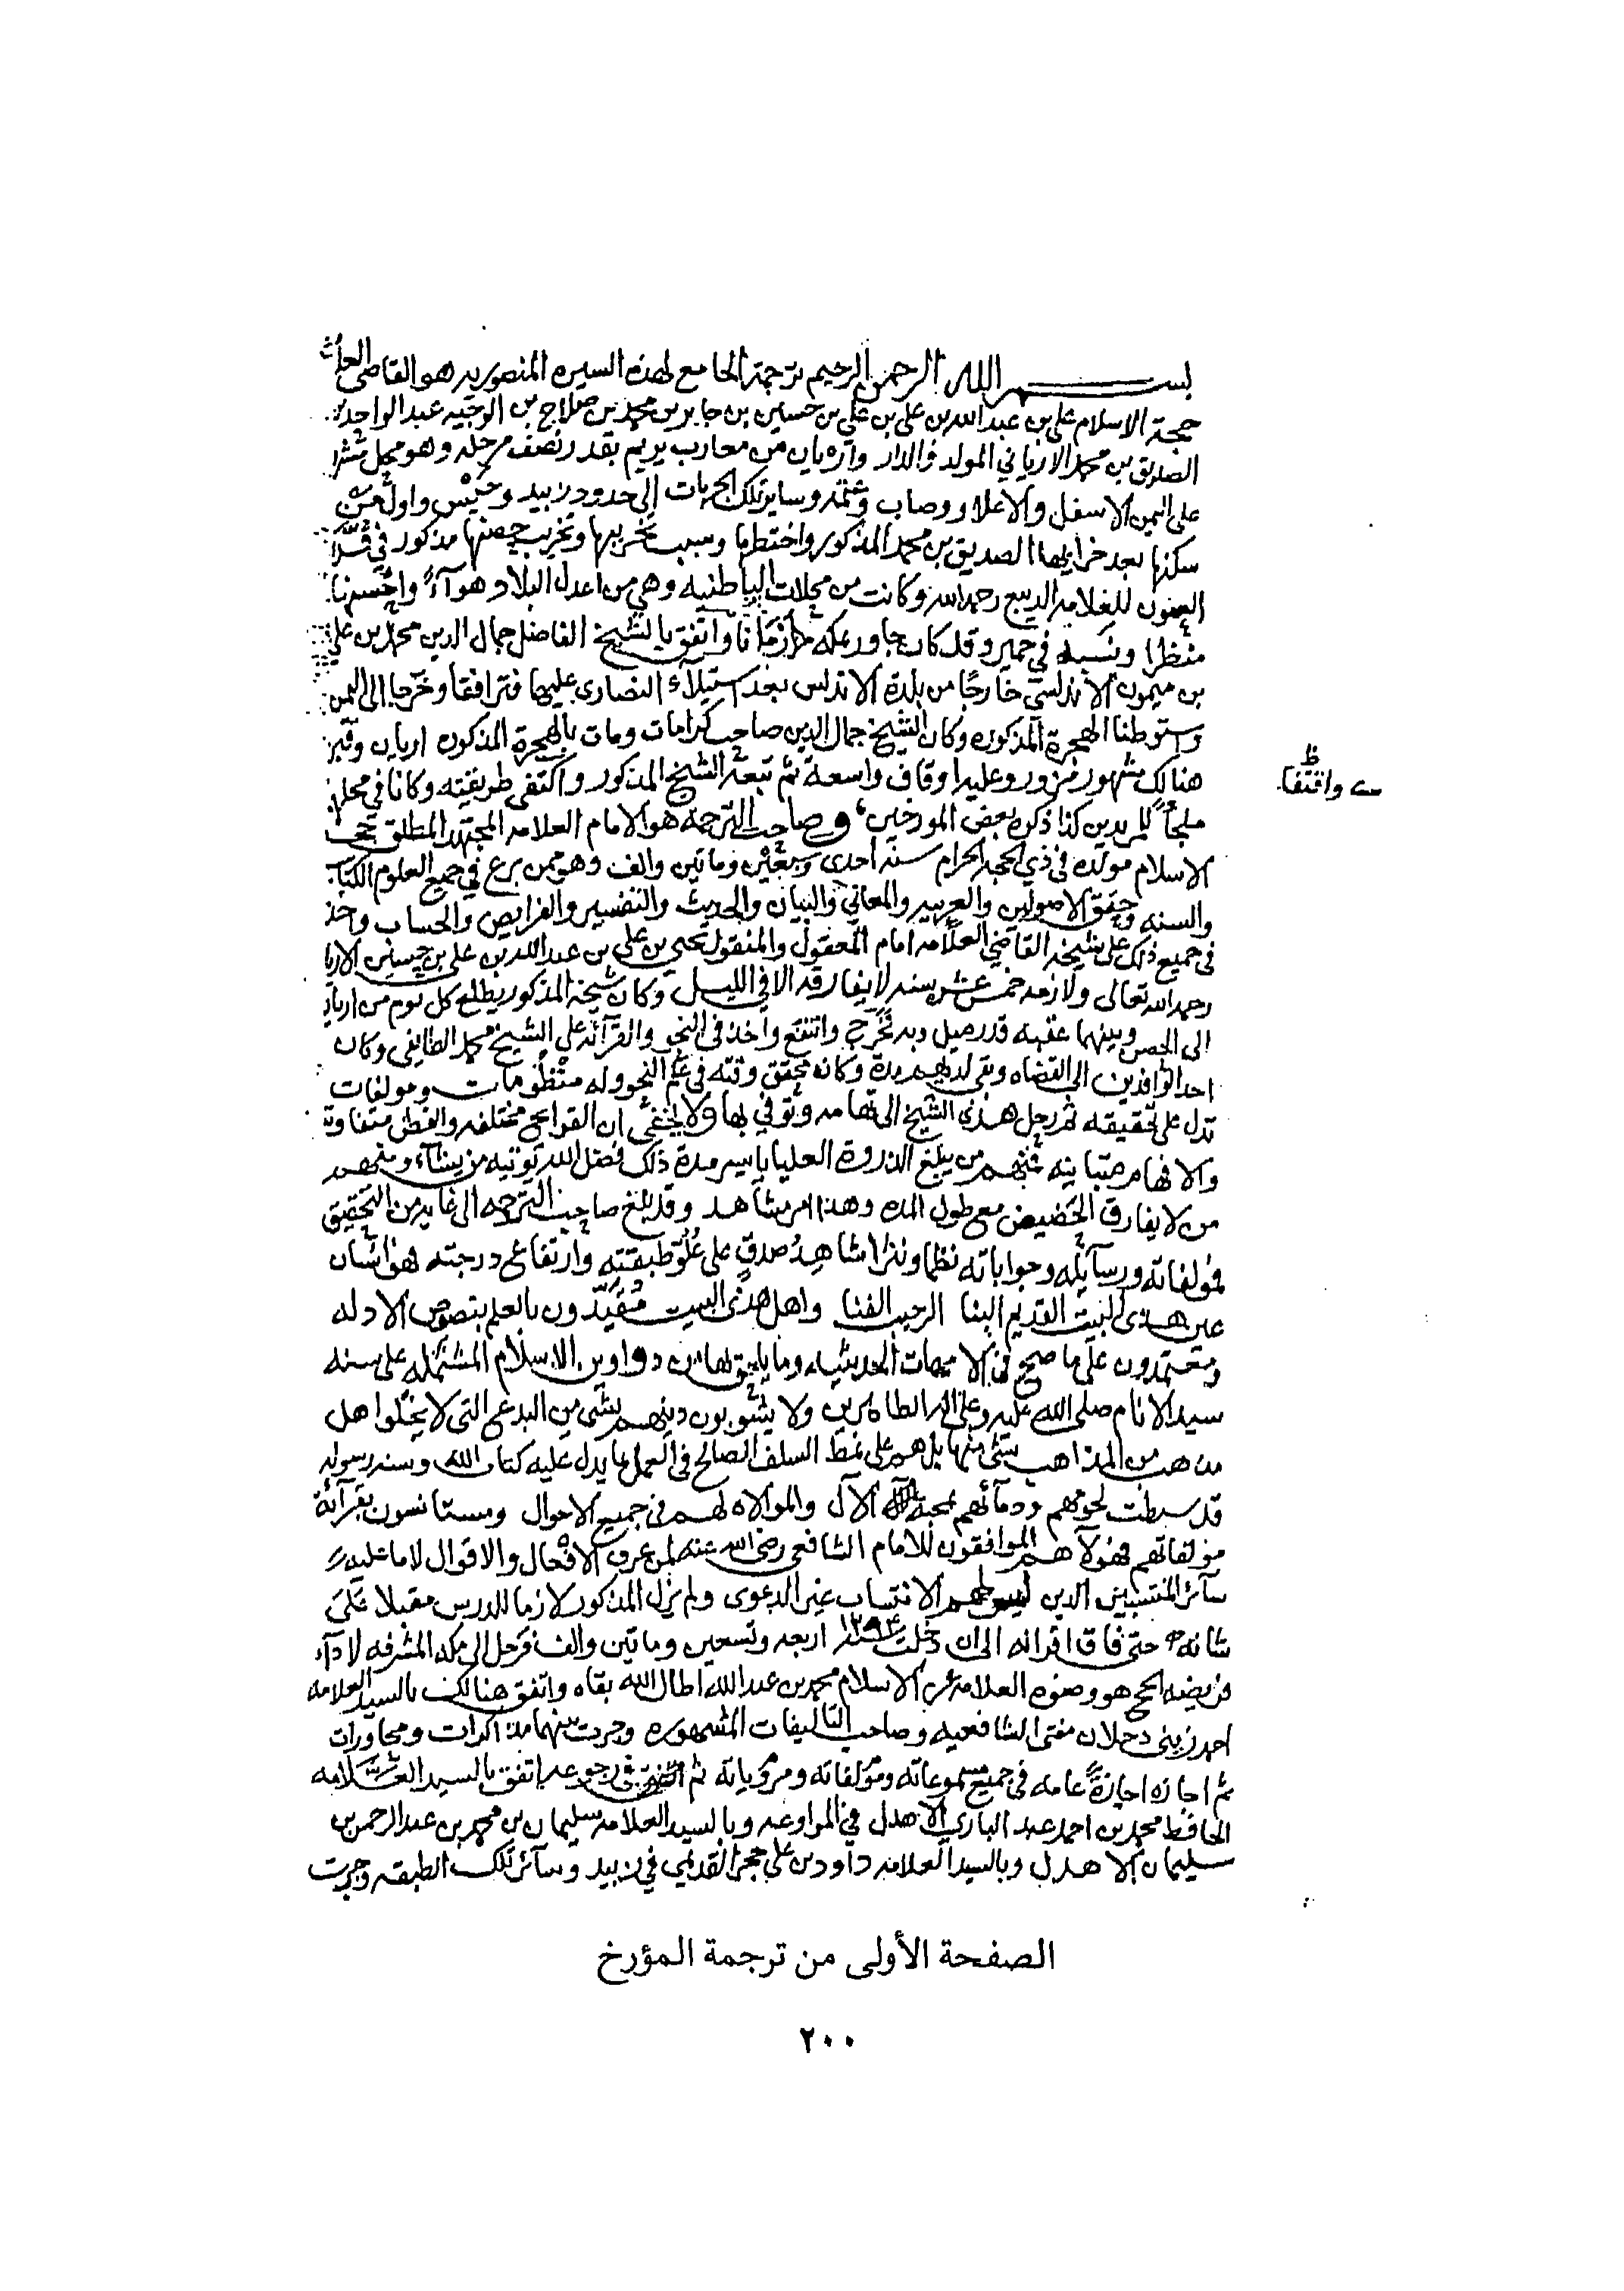 بسم الله الرحمن الرحيم ترجمة الجامع لهذه السيره المنصوريه هو القاضي العلامه
حجة الاسلام علي بن عبد الله بن علي بن علي بن حسين بن جابر بن محمد بن صلاج بن الوجيه عبد الواحد بن
الصديق بن محمد الارياني المولد والدار واريان من محارب يريم بقدر نصف مرحله وهو محل مشرف
على اليمن الاسفل والاعلا ووصاب وعتمه وساير تلك الجهات الى حدود زبيد وحيس واول من
سكنها بعد خرابها الصديق بن محمد المذكور واختطها وسبب تخريبها وتخريب حصنها مذكور في
العيون للعلامه الديبع رحمه الله وكانت من محلات الباطنيه وهي من اعدل البلاد هوآءً واحسنها
منظرا ونسبه في حمير وقد كان جاور بمكه زمانا واتفق بالشيخ الفاضل جمال الدين محمد بن علي
بن ميمون الاندلسي خارجًا من بلدة الاندلس بعد استيلاء النصارى عليها فترافقا وخرجا الى اليمن
واستوطنا الهجرة المذكوره وكان الشيخ جمال الدين صاحب كرامات ومات بالهجرة المذكوره اريان وقبره
هنالك مشهور مزور وعليه اوقاف واسعة ثم تبعه الشيخ المذكور واكتفى طريقته وكانا في محلهما
ظ
واقتفا
ملجأ للمريدين كذا ذكره بعض المورخين، وصاحب الترجمه هو الامام العلامه المجتهد المطلق حجة
الاسلام مولده في ذي الحجه الحرام سنه احدى وسبعين وماتين والف وهو ممن برع في جميع العلوم الكتاب
والسنه وحقق الاصولين والعربيه والمعاني والبيان والحديث والتفسير والفرايض والحساب واخذ
في جميع ذلك على شيخه القاضي العلامه امام المعقول والمنقول يحيى بن علي بن عبد الله بن علي بن حسين الارياني
رحمه الله تعالى ولازمه خمس عشر سنه لا يفارقه الا في الليل وكان شيخه المذكور يطلع كل يوم من اريان
الى الحصن وبينهما عقبه قدر ميل وبه تخرج وانتفع واخذ في النحو والقرآئه على الشيخ محمد الطائفي وكان
احد الوافدين الى القضاه وبقى لديهم مدة وكان محقق وقته في علم النحو وله منظومات ومولفات
تدل على تحقيقه ثم رحل هذا الشيخ الى تهامه وتوفي بها ولا يخفى ان القرايح مختلفه والفطن متفاوته
والافهام متباينه فمنهم من يبلغ الذروة العليا بايسر مدة ذلك فضل الله يوتيه من يشآء ومنهم
من لا يفارق الحضيض مع طول المده وهذا امر مشاهد وقد بلغ صاحب الترجمه الى غايه من التحقيق
فمولفاته ورسآيله وجواباته نظما ونثرا شاهدُ صدقٍ على عُلُوّ طبقته وارتفاع درجته هو انسان
عين هذا البيت القديم البنا الرحيب الفنا واهل هذا البيت مُقيّدون بالعلم بنصوص الادله
ومعتمدون على ما صح في الامهات الحديثيه وما يلحق بها من دواوين الاسلام المشتمله على سنه
سيد الانام صلى الله عليه وعلى اله الطاهرين ولا يشوبون دينهم بشي من البدع التي لا يخلوا اهل
مذهب من المذاهب بشئ منها بل هم على نمط السلف الصالح في العمل بما يدل عليه كتاب الله وسنه رسوله
قد سيطت لحومهم ودمآئهم بمحبة الآل والموالاه لهم في جميع الاحوال ومستانسون بقرآئة
مولفاتهم فهولآ هم الموافقون للامام الشافعي رضي الله عنه لمن عرف الافعال والاقوال لا ما عليه
سآئر المنتسبين الذين ليس لهم الانتساب غير الدعوى ولم يزل المذكور لازما للدرس مقبلا على
شانه حتى فاق اقرانه الى ان دخلت سنه ١٢٩٤ اربعه وتسعين وماتين والف فرحل الى مكه المشرفه لادآء
فريضه الحج هو وصنوه العلامه عز الاسلام محمد بن عبد الله اطال الله بقاه واتفق هنالك بالسيد العلامه
احمد زيني دحلان مفتى الشافعيه وصاحب التاليفات المشهوره وجرت بينهما مذاكرات ومحاورات
ثم اجازه اجازةً عامه في جميع مسموعاته ومؤلفاته ومروياته ثم في رجوعه اتفق بالسيد العلامه
الحافظ محمد بن احمد عبد الباري الاهدل في المراوعه وبالسيد العلامه سليمان بن محمد بن عبد الرحمن بن
سليمان الاهدل وبالسيد العلامه داود بن علي حجر القديمي في زبيد وسآئر تلك الطبقه وجرت
الصفحة الأولى من ترجمة المؤرخ
٢٠٠